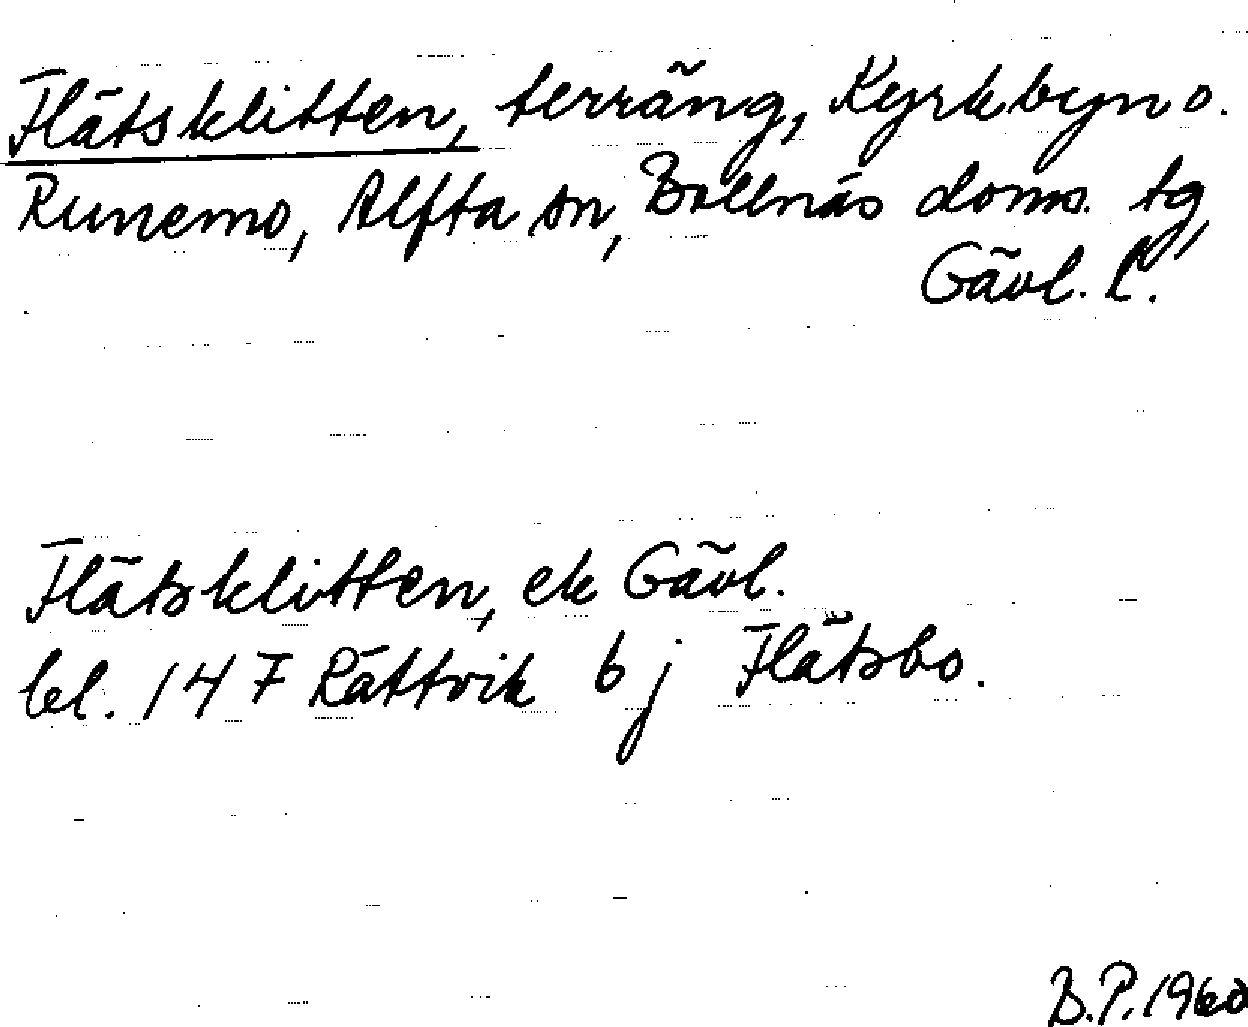 Flätsklitten, terräng, Kyrkbyn o.
Runemo, Alfta sn, Bollnäs doms. tg,
Gävl. l.
Flätsklitten, ek Gävl.
bl. 14 F Rättvik 6 j Flätsbo.
B.P. 1960